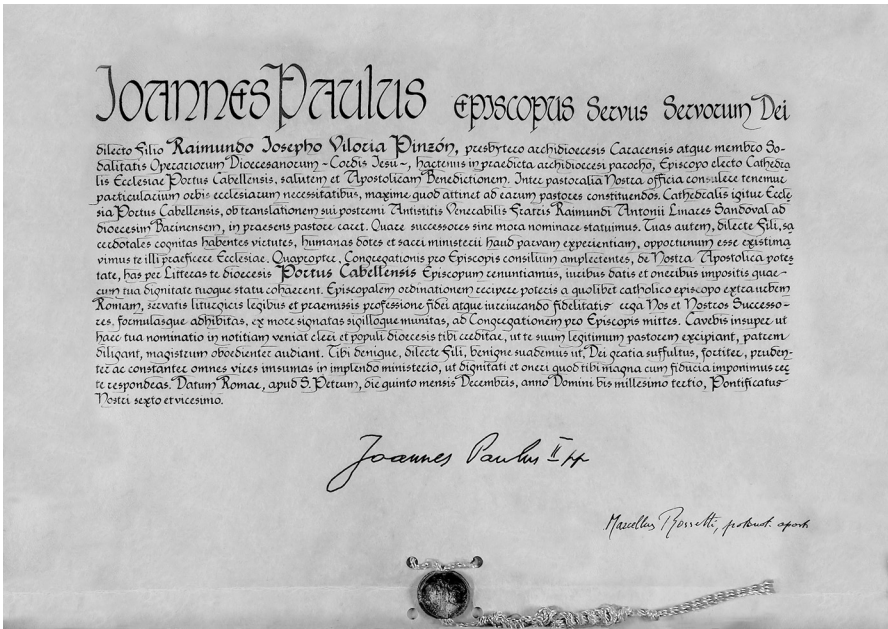 Joannes Paulus Episcopus Servus Servorum Dei
dilecto Filio Raimundo Josepho Viloria Pinzón, presbytero archidioecesis Caracensis atque membro So-
dalitatis Operariorum Dioecesanorum - Cordis Iesu -, hactenus in praedicta archidioecesi parocho, Episcopo electo Cathedra
lis Ecclesiae Portus Cabellensis, salutem et Apostolicam Benedictionem. Inter pastoralia Nostra officia consulere tenemur
particularium orbis ecclesiarum necessitatibus, maxime quod attinet ad earum pastores constituendos. Cathedralis igitur Eccle
sia Portus Cabellensis, ob translationem sui postremi Antistitis Venerabilis Fratris Raimundi Antonii Linares Sandoval ad
dioecesim Barinensem, in praesens pastore caret. Quare successorem sine mora nominare statuimus. Tuas autem, dilecte Fili, sa
cerdotales cognitas habentes virtutes, humanas dotes et sacri ministerii haud parvam experientiam, opportunum esse existima
vimus te illi praeficere Ecclesiae. Quapropter, Congregationis pro Episcopis consilium amplectentes, de Nostra Apostolica potes
tate, has per Litteras te dioecesis Portus Cabellensis Episcopum renuntiamus, iuribus datis et oneribus impositis quae
cum tua dignitate tuoque statu cohaerent. Episcopalem ordinationem recipere poteris a quolibet catholico episcopo extra urbem
Romam, servatis liturgicis legibus et praemissis professione fidei atque iureiurando fidelitatis erga Nos et Nostros Successo-
res, formulasque adhibitas, ex more signatas sigilloque munitas, ad Congregationem pro Episcopis mittes. Cavebis insuper ut
haec tua nominatio in notitiam veniat cleri et populi dioecesis tibi creditae, ut te suum legitimum pastorem excipiant, patrem
diligant, magistrum oboedienter audiant. Tibi denique, dilecte Fili, benigne suademus ut, Dei gratia suffultus, fortiter, pruden-
ter ac constanter omnes vires insumas in implendo ministerio, ut dignitati et oneri quod tibi magna cum fiducia imponimus rec
te respondeas. Datum Romae, apud S. Petrum, die quinto mensis Decembris, anno Domini bis millesimo tertio, Pontificatus
Nostri sexto et vicesimo.
Joannes Paulus II pp
Marcellus Rossetti, protonot. apost.